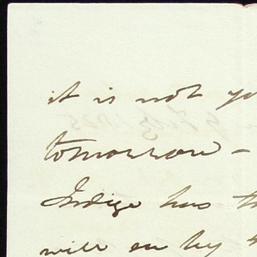 it is not yo
tomorrow -
Indigo has th
will en by